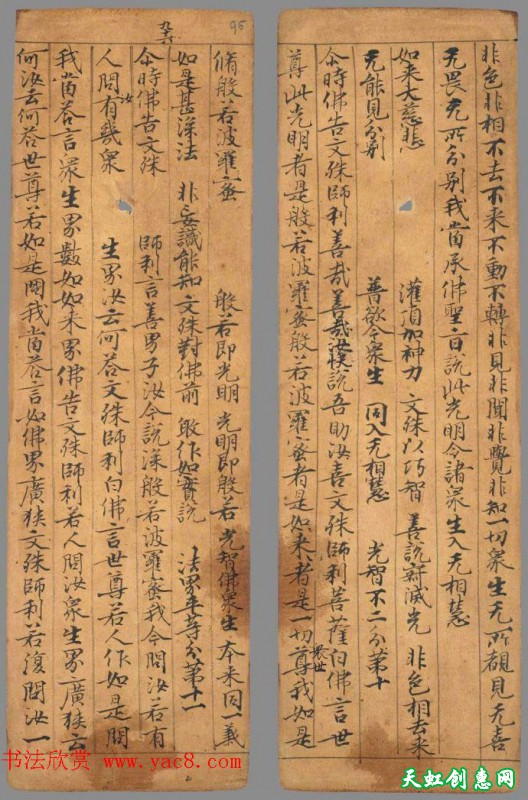 非色非相不去不来不動不轉非見非聞非覺非知一切衆生无所覩見无喜
无畏无所分别我當承佛聖旨說此光明令諸衆生入无相慧
如来大慈悲 灌頂加神力 文殊以巧智 善說寂滅光 非色相去来
无能見分别 普欲令衆生 同入无相慧 光智不二分第十
尒時佛告文殊師利善㢤善㢤汝快說吾助汝喜文殊師利菩薩白佛言世
尊此光明者是般若波羅蜜般若波羅蜜者是如来者是一切世尊我如是
96
脩般若波羅蜜 般若即光明 光明即般若 光智佛衆生 本来同一義
如是甚深法 非妄識能知 文殊對佛前 敢作如實說 法界平等分第十一
尒時佛告文殊師利言善男子汝今說深般若波羅蜜我今問汝若有
人問汝有幾衆生界汝云何荅文殊師利白佛言世尊若人作如是問
我當荅言衆生界數如如来界佛告文殊師利若人問汝衆生界廣狭云
何汝云何荅世尊若如是問我當荅言如佛界廣狭文殊師利若復問汝一
书法欣赏 www.yac8.com
天虹创意网